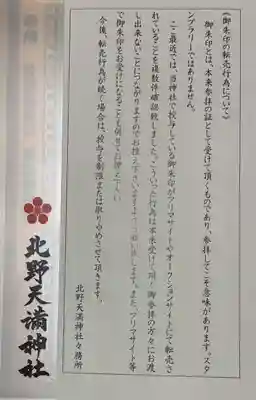 《御朱印の転売行為について》
御朱印とは、本来参拝の証として受けて頂くものであり、参拝してこそ意味があります。スタ
ンプラリーではありません。
ここ最近では、当神社で授与している御朱印がフリマサイトやオークションサイトにて転売さ
れていることを複数件確認致しました。こういった行為は本来受けて頂く御参拝の方々にお渡
し出来ないことにつながりますのでお控え下さいますようお願い致します。また、フリマサイト等
で御朱印をお受けになることも併せてお控え下さい。
今後、転売行為が続く場合は、授与を制限または取りやめさせて頂きます。
北野天満神社々務所
北野天満神社